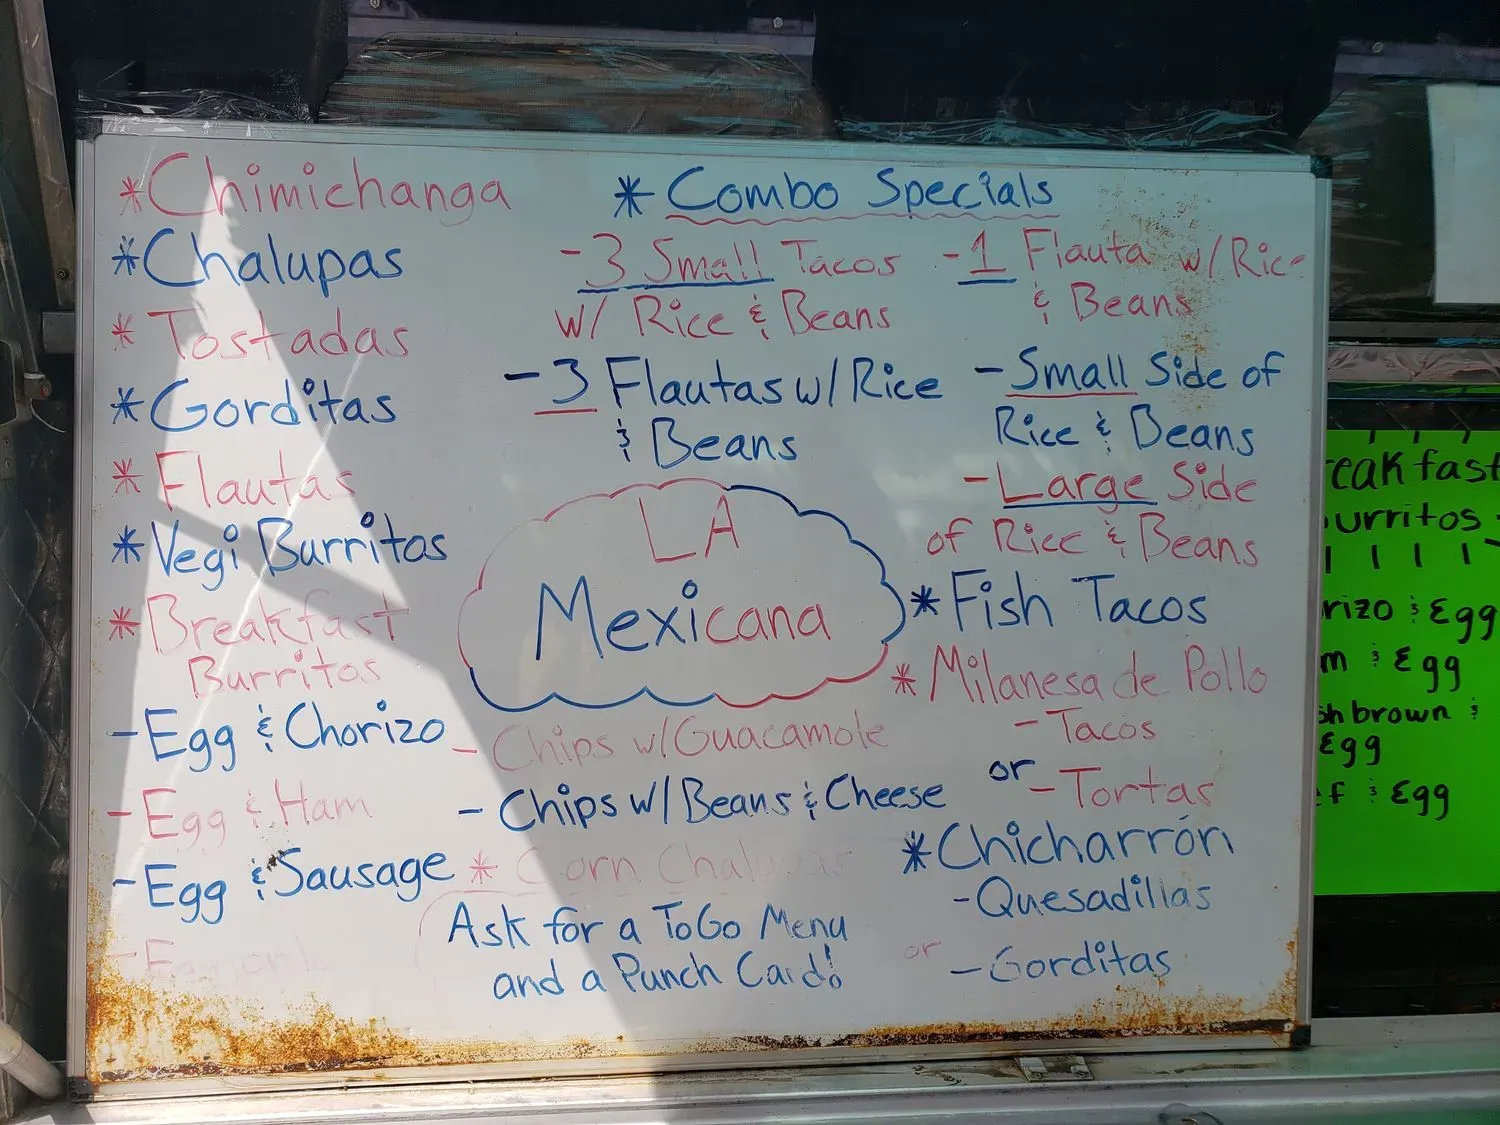 *Chimichanga
*Chalupas
*Tostadas
*Gorditas
*Flautas
*Vegi Burritos
*Breakfast
Burritos
-Egg & Chorizo
-Egg & Ham
-Egg & Sausage
*Combo Specials
-3 Small Tacos
w/ Rice & Beans
-3 Flautas w/Rice
& Beans
-1 Flauta w/Rice
& Beans
-Small Side of
Rice & Beans
-Large Side
of Rice & Beans
LA
Mexicana
-Chips w/Guacamole
-Chips w/Beans & Cheese
*Corn Chalupas
Ask for a ToGo Menu
and a Punch Card!
*Fish Tacos
*Milanesa de Pollo
-Tacos
or -Tortas
*Chicharrón
-Quesadillas
or -Gorditas
eakfast
urritos
rizo & Egg
m & Egg
sh brown &
Egg
f & Egg